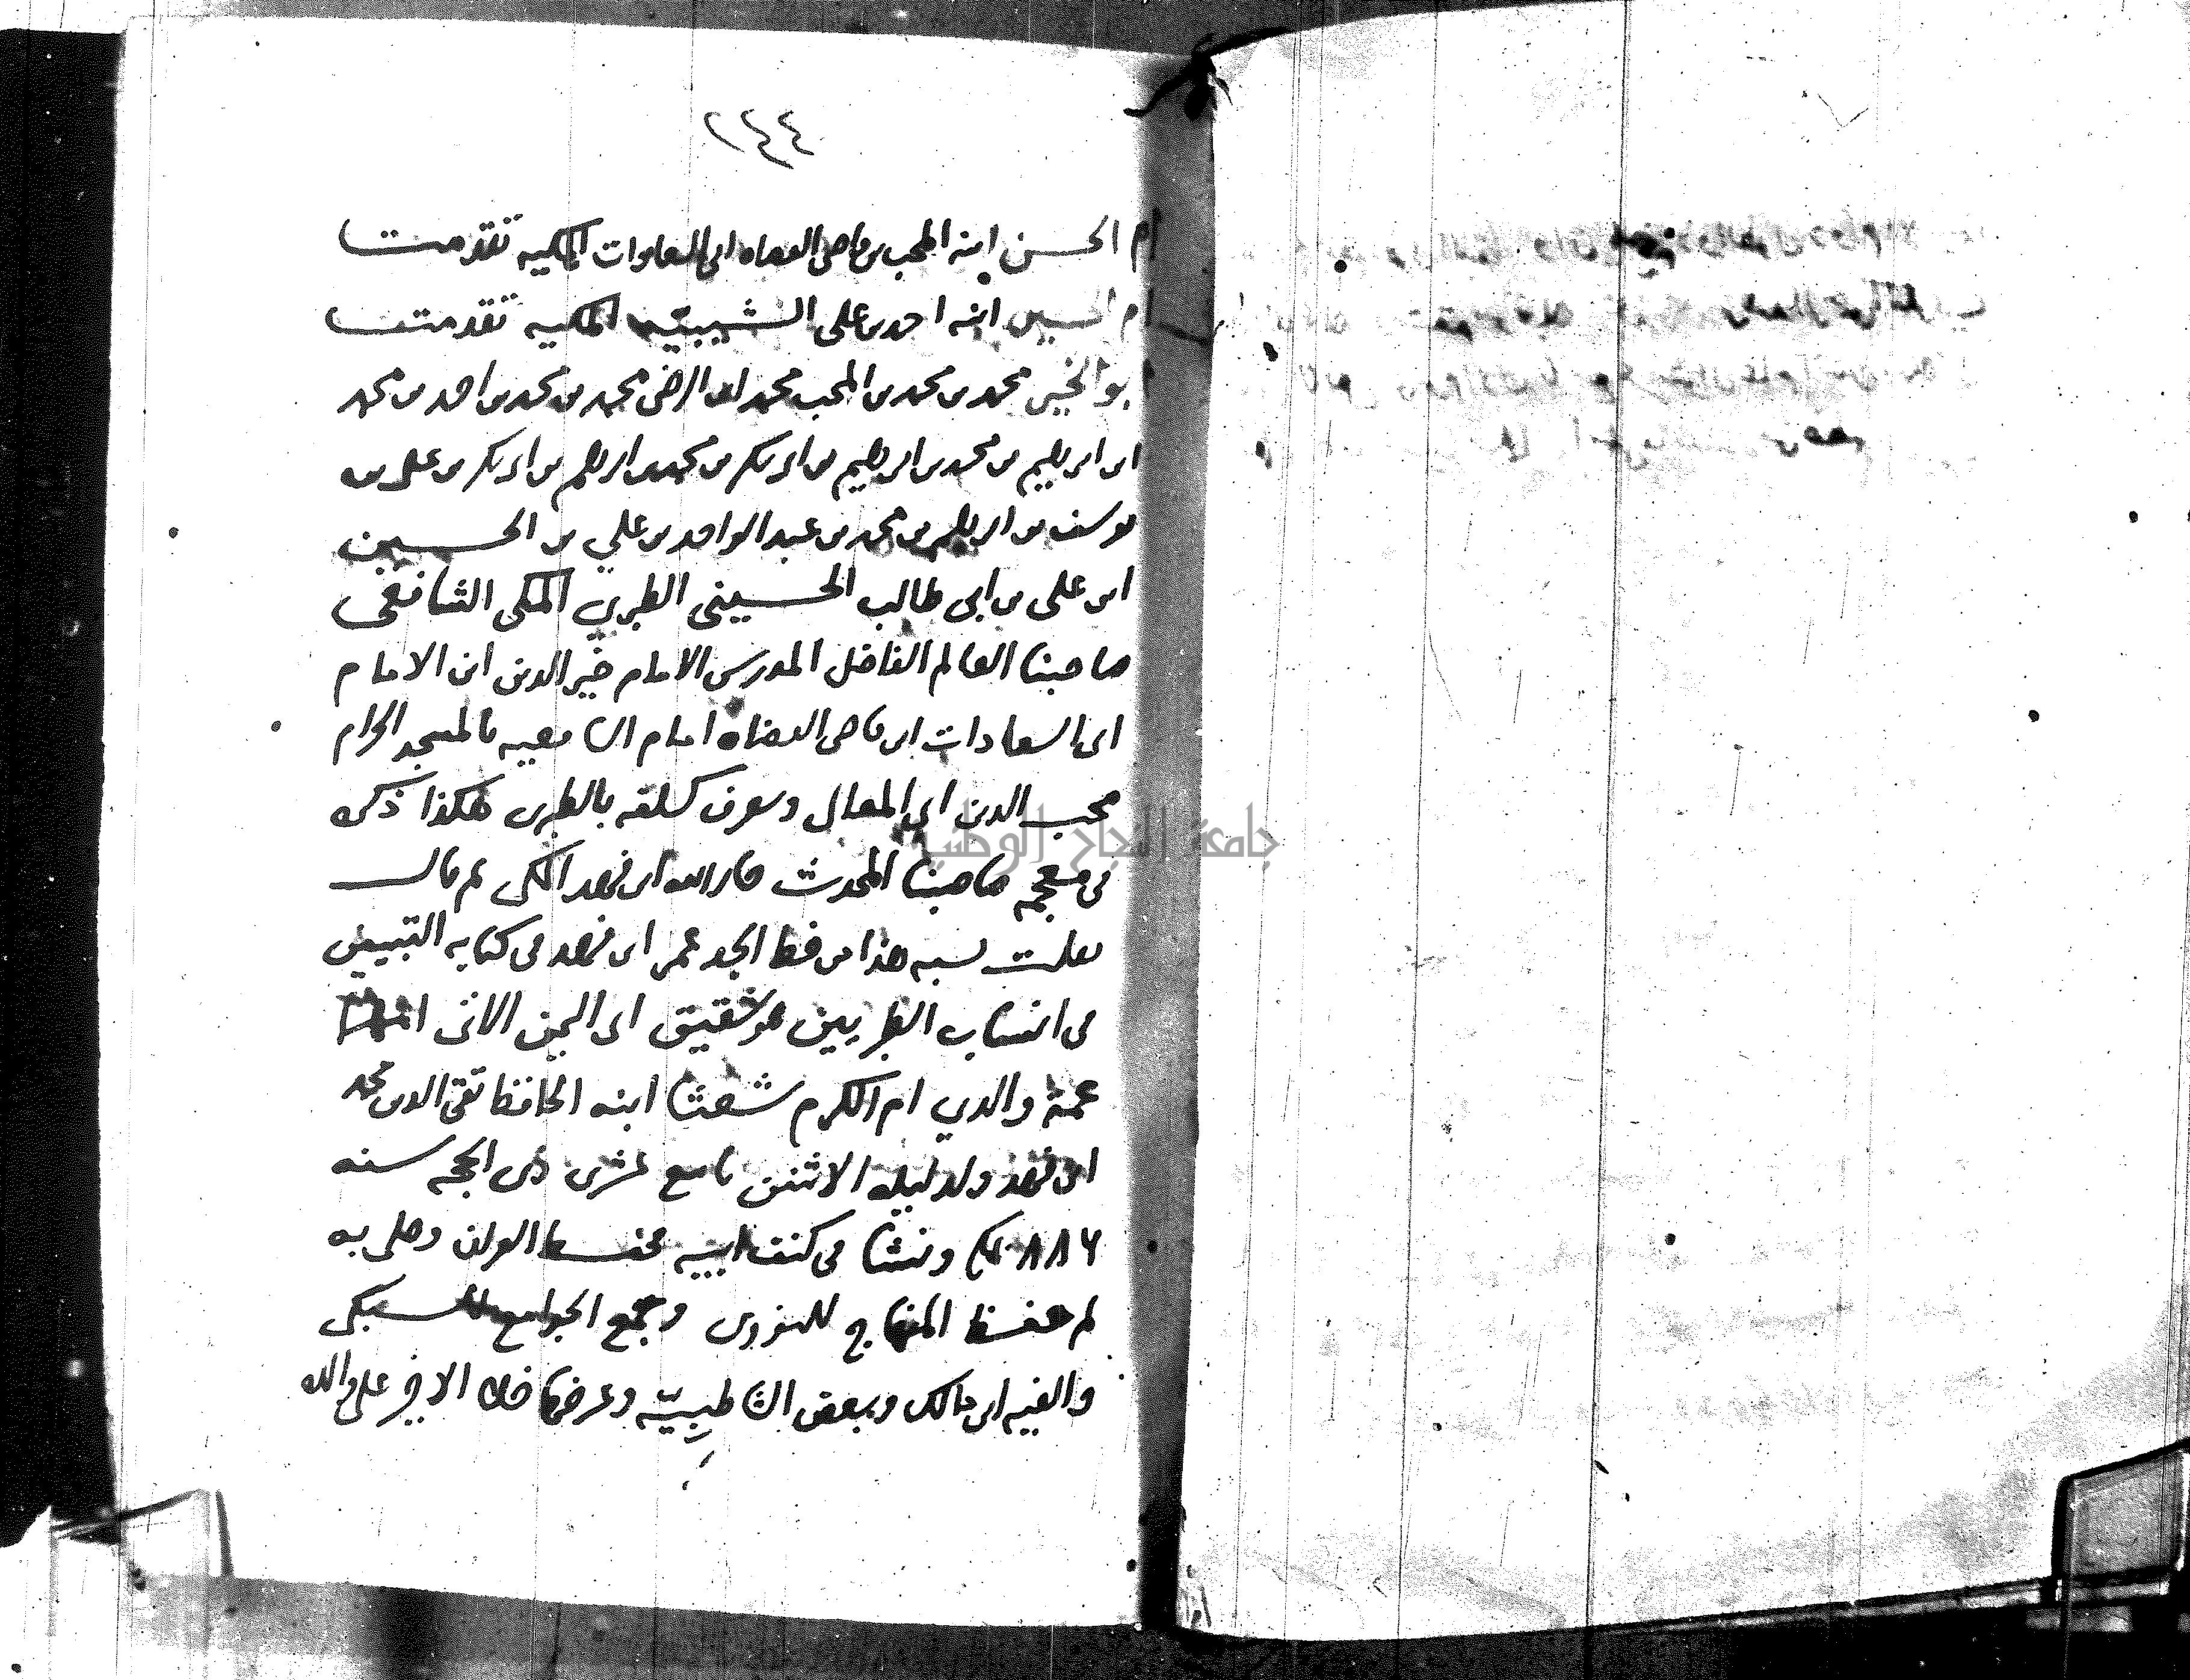 ٢٤٤
ام الحسن ابنه المحب بن قاضى القضاه ابى السعادات المكيه تقدمت
ام الحسين ابنه احمد بن على الشيبيّه المكيه تقدمت
ابو الخير محمد بن محمد بن المحب محمد بن الرضى محمد بن محمد بن احمد بن محمد
ابن ابراهيم بن محمد بن ابراهيم بن ابى بكر بن محمد بن ابراهيم بن ابى بكر بن على بن
يوسف بن ابراهيم بن محمد بن عبد الواحد بن علي بن الحسين
ابن على بن ابى طالب الحسينى الطبري المكى الشافعى
صاحبنا العالم الفاضل المدرس الامام خير الدين ابن الامام
ابى السعادات ابن قاضى القضاه امام الشافعيه بالمسجد الحرام
محب الدين ابى المعالى ويعرف كسلفه بالطبرى هكذا ذكره
فى معجمه صاحبنا المحدث جار الله ابن فهد المكى ثم قال
نقلت نسبه هذا من خط الجد عمر ابن فهد فى كتابه التبيين
فى انساب الطبريين هو شقيق ابى اليمن الاتى
عمة والدي ام الكرم شعثا ابنه الحافظ تقى الدين محمد
ابن فهد ولد ليله الاثنين تاسع عشرى ذى الحجه سنه
٨٨٦ بمكه ونشا فى كنف ابيه فحفظ القران وصلى به
ثم حفظ المنهاج للنووى وجمع الجوامع للسبكى
والفيه ابن مالك وبعض الشاطبيّه وعرضها خلا الاخير على والده
جامعة النجاح الوطنية